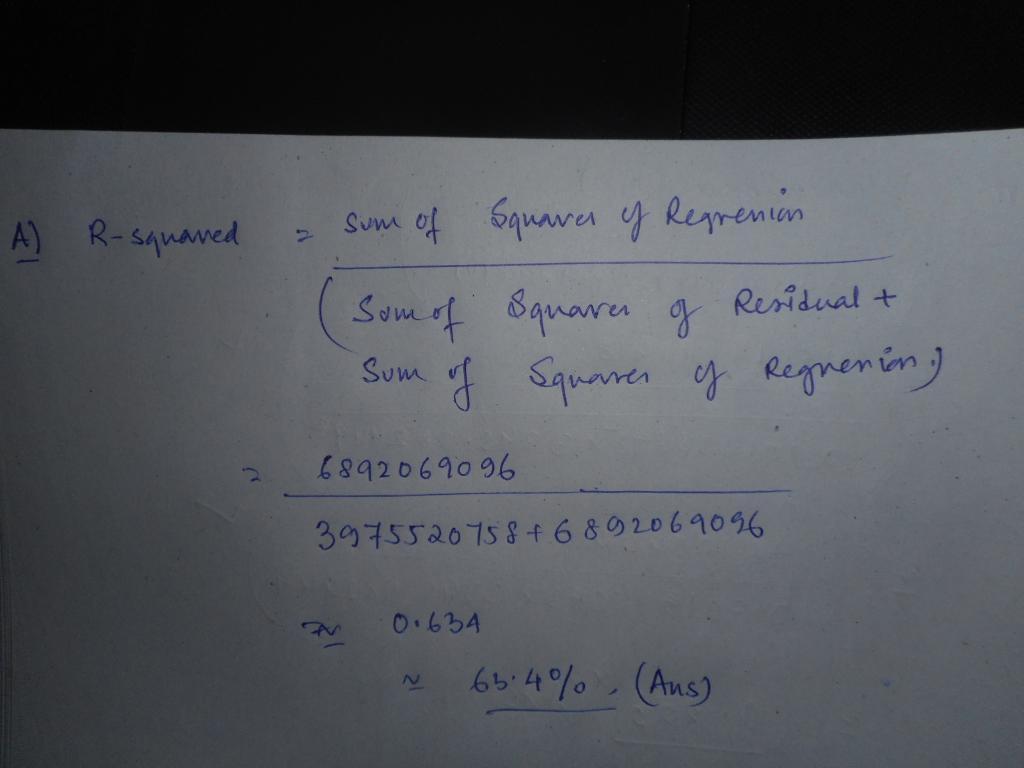 A) R-squared = Sum of Squares of Regression
(Sum of Squares of Residual +
Sum of Squares of Regression)
= 6892069096
3975520758 + 6892069096
≈ 0.634
≈ 63.4%. (Ans)